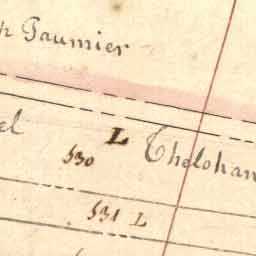 Paumier
L Thelohan
530
531 L